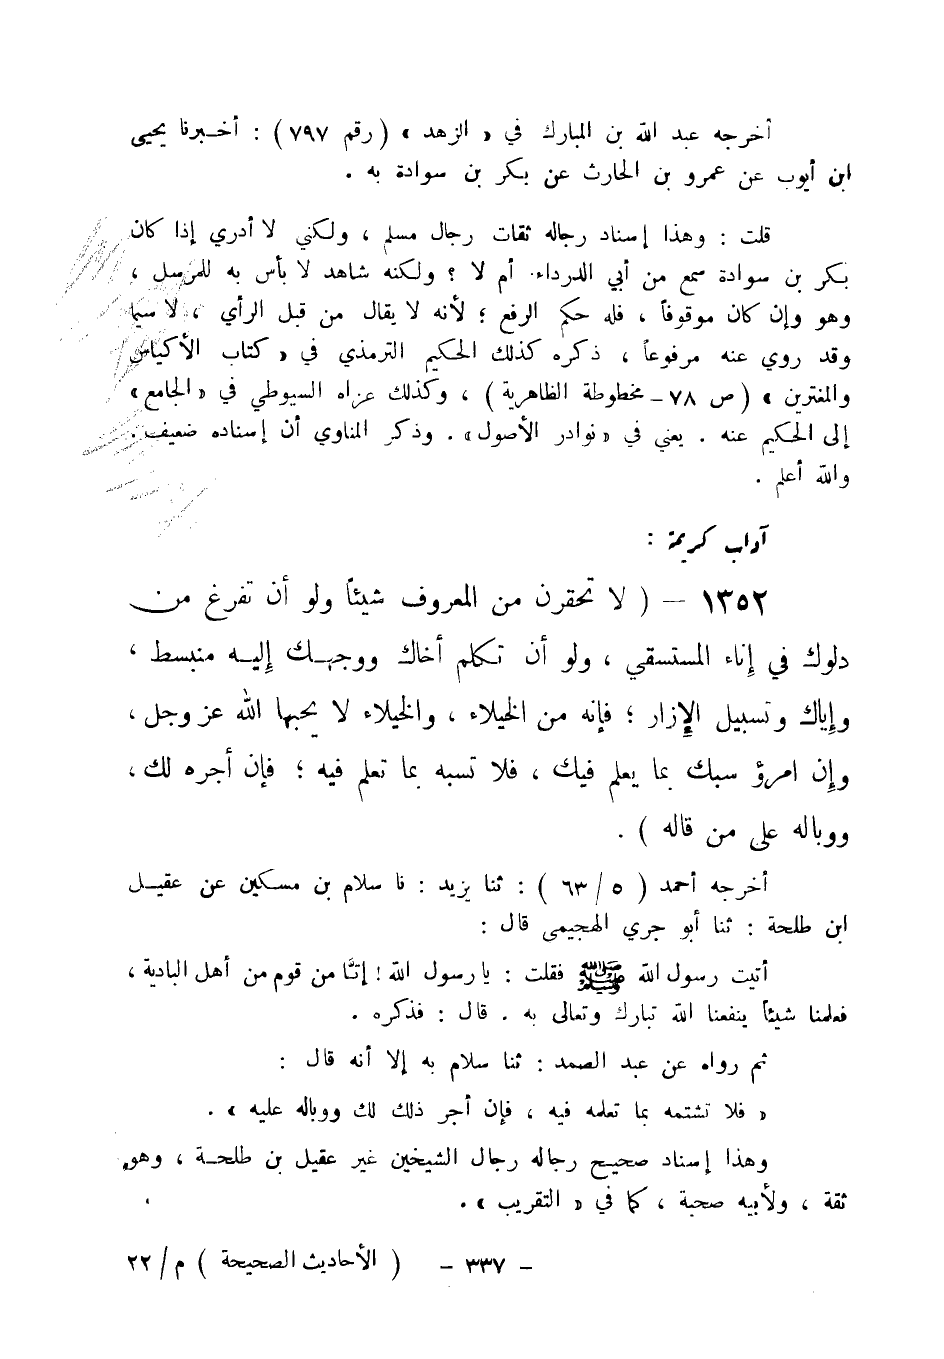 أخرجه عبد الله بن المبارك في « الزهد » ( رقم ٧٩٧ ) : أخـبرنا يحيى
ابن أيوب عن عمرو بن الحارث عن بكر بن سوادة به .
قلت : وهذا إسناد رجاله ثقات رجال مسلم ، ولكني لا أدري إذا كان
بكر بن سوادة سمع من أبي الدرداء أم لا ؟ ولكنه شاهد لا بأس به للمرسل ،
وهو وإن كان موقوفاً ، فله حكم الرفع ؛ لأنه لا يقال من قبل الرأي ، لا سيما
وقد روي عنه مرفوعاً ، ذكره كذلك الحكيم الترمذي في « كتاب الأكياس
والمغترين » ( ص ٧٨ ـ مخطوطة الظاهرية ) ، وكذلك عزاه السيوطي في « الجامع »
إلى الحكيم عنه . يعني في « نوادر الأصول » . وذكر المناوي أن إسناده ضعيف .
والله أعلم .
آداب كريمة :
١٣٥٢ – ( لا تحقرن من المعروف شيئاً ولو أن تفرغ من
دلوك في إناء المستسقي ، ولو أن تكلم أخاك ووجهـك إليـه منبسط ،
وإياك وتسبيل الإزار ؛ فإنه من الخيلاء ، والخيلاء لا يحبها الله عز وجل ،
وإن امرؤ سبك بما يعلم فيك ، فلا تسبه بما تعلم فيه ؛ فإن أجره لك ،
ووباله على من قاله ) .
أخرجه أحمد ( ٥ / ٦٣ ) : ثنا يزيد : نا سلام بن مسكين عن عقيـل
ابن طلحة : ثنا أبو جري الهجيمى قال :
أتيت رسول الله ﷺ فقلت : يا رسول الله ! إنَّا من قوم من أهل البادية ،
فعلمنا شيئاً ينفعنا الله تبارك وتعالى به . قال : فذكره .
ثم رواه عن عبد الصمد : ثنا سلام به إلا أنه قال :
« فلا تشتمه بما تعلمه فيه ، فإن أجر ذلك لك ووباله عليه » .
وهذا إسناد صحيح رجاله رجال الشيخين غير عقيل بن طلحـة ، وهو
ثقة ، ولأبيه صحبة ، كما في « التقريب » .
- ٣٣٧ - ( الأحاديث الصحيحة ) م / ٢٢